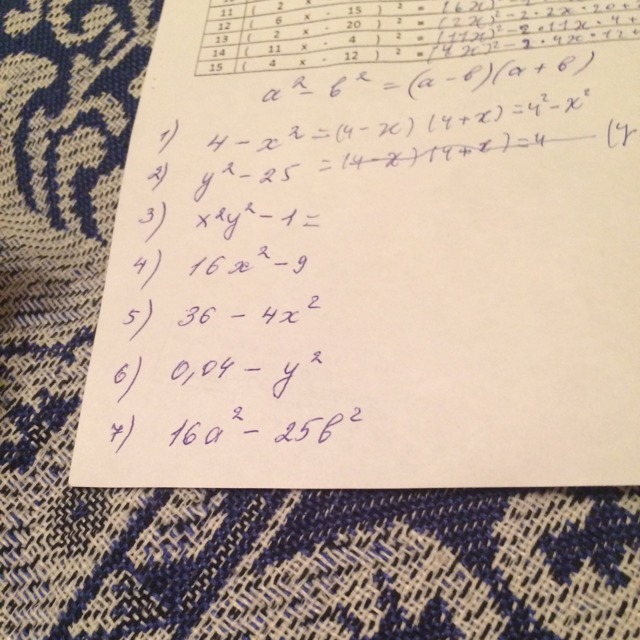 11 ( 2 x - 15 ) ² = (6x)²-2
12 ( 6 x - 20 ) ² = (2x)²-2·2x·20+
13 ( 2 x - 4 ) ² = (11x)²-2·11x·4+
14 ( 11 x - 12 ) ² = (4x)²-2·4x·12+
15 ( 4
a² - b² = (a-b)(a+b)
1) 4-x² = (4-x)(4+x) = 4²-x²
2) y²-25 = (4-x)(4+x)=4 (y
3) x²y²-1=
4) 16x²-9
5) 36-4x²
6) 0,04-y²
7) 16a²-25b²